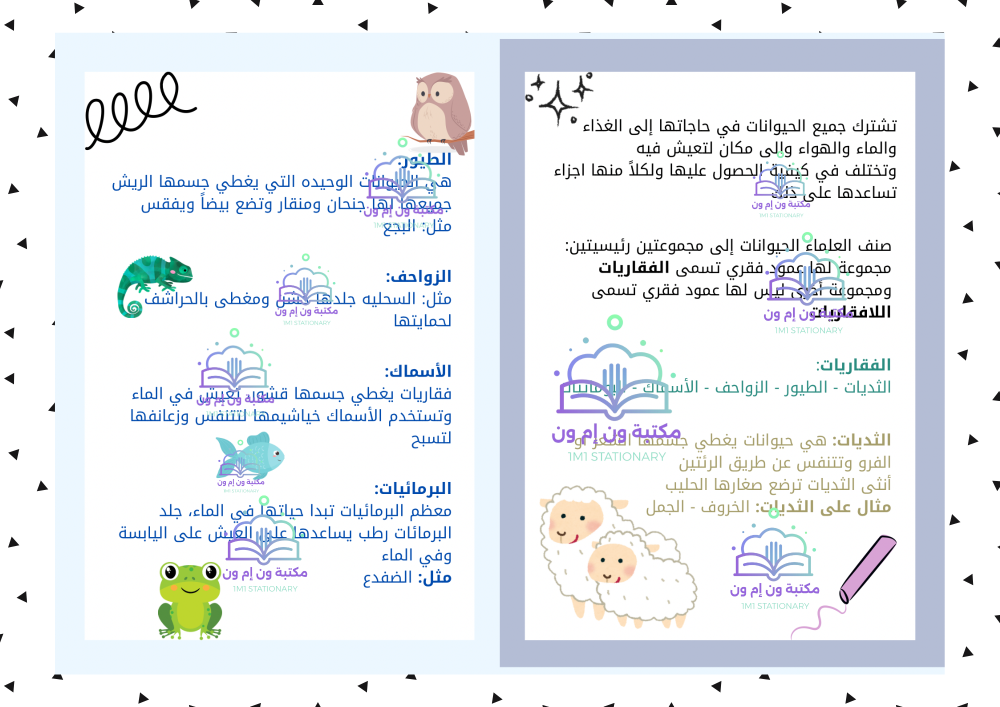 تشترك جميع الحيوانات في حاجاتها إلى الغذاء
والماء والهواء والى مكان لتعيش فيه
وتختلف في كيفية الحصول عليها ولكلاً منها اجزاء
تساعدها على ذلك
مكتبة ون إم ون
1M1 STATIONARY
صنف العلماء الحيوانات إلى مجموعتين رئيسيتين:
مجموعة لها عمود فقري تسمى الفقاريات
ومجموعة أخرى ليس لها عمود فقري تسمى
اللافقاريات
مكتبة ون إم ون
1M1 STATIONARY
الفقاريات:
الثديات - الطيور - الزواحف - الأسماك - البرمائيات
مكتبة ون إم ون
1M1 STATIONARY
الثديات: هي حيوانات يغطي جسمها الشعر او
الفرو وتتنفس عن طريق الرئتين
أنثى الثديات ترضع صغارها الحليب
مثال على الثديات: الخروف - الجمل
مكتبة ون إم ون
1M1 STATIONARY
الطيور:
هي الحيوانات الوحيده التي يغطي جسمها الريش
جميعها لها جنحان ومنقار وتضع بيضاً ويفقس
مثل: البجع
مكتبة ون إم ون
1M1 STATIONARY
الزواحف:
مثل: السحليه جلدها خشن ومغطى بالحراشف
لحمايتها
مكتبة ون إم ون
1M1 STATIONARY
الأسماك:
فقاريات يغطي جسمها قشور تعيش في الماء
وتستخدم الأسماك خياشيمها لتتنفس وزعانفها
لتسبح
مكتبة ون إم ون
1M1 STATIONARY
مكتبة ون إم ون
1M1 STATIONARY
البرمائيات:
معظم البرمائيات تبدا حياتها في الماء، جلد
البرمائات رطب يساعدها على العيش على اليابسة
وفي الماء
مثل: الضفدع
مكتبة ون إم ون
1M1 STATIONARY